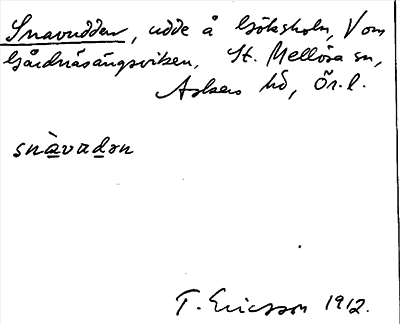 Snavudden, udde å Göksholm, V om
Gårdnäsängsviken, St. Mellösa sn,
Askers hd, Ör. l.
snàvadən
T. Ericsson 1912.